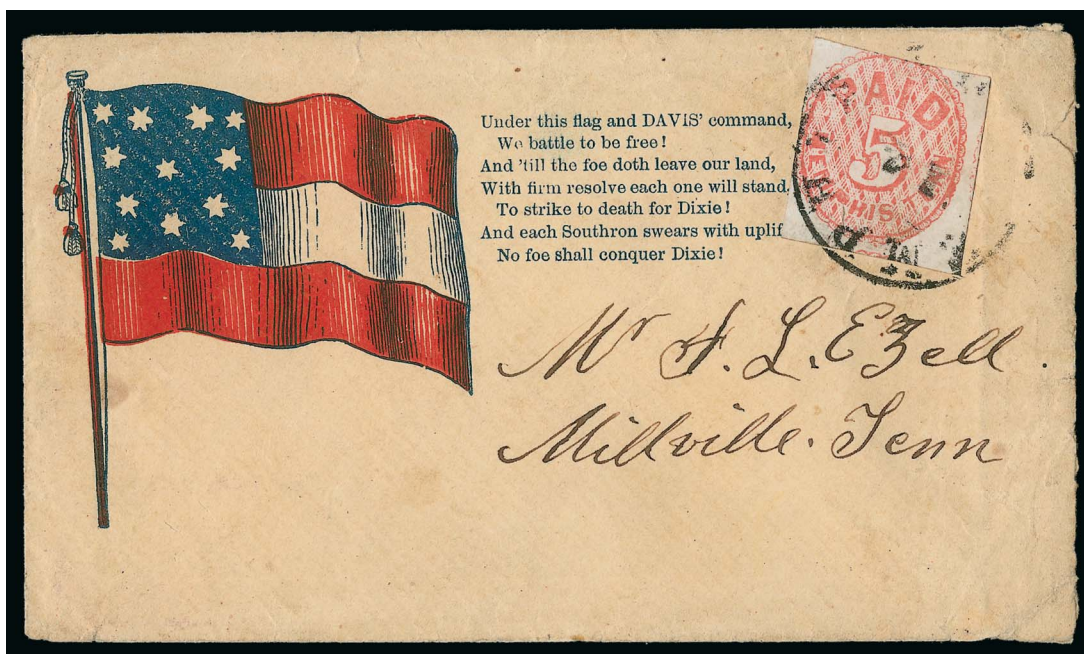 Under this flag and DAVIS' command,
We battle to be free!
And 'till the foe doth leave our land,
With firm resolve each one will stand,
To strike to death for Dixie!
And each Southron swears with uplif
No foe shall conquer Dixie!
PAID
5
Mr
L. Ezell.
Millville. Tenn